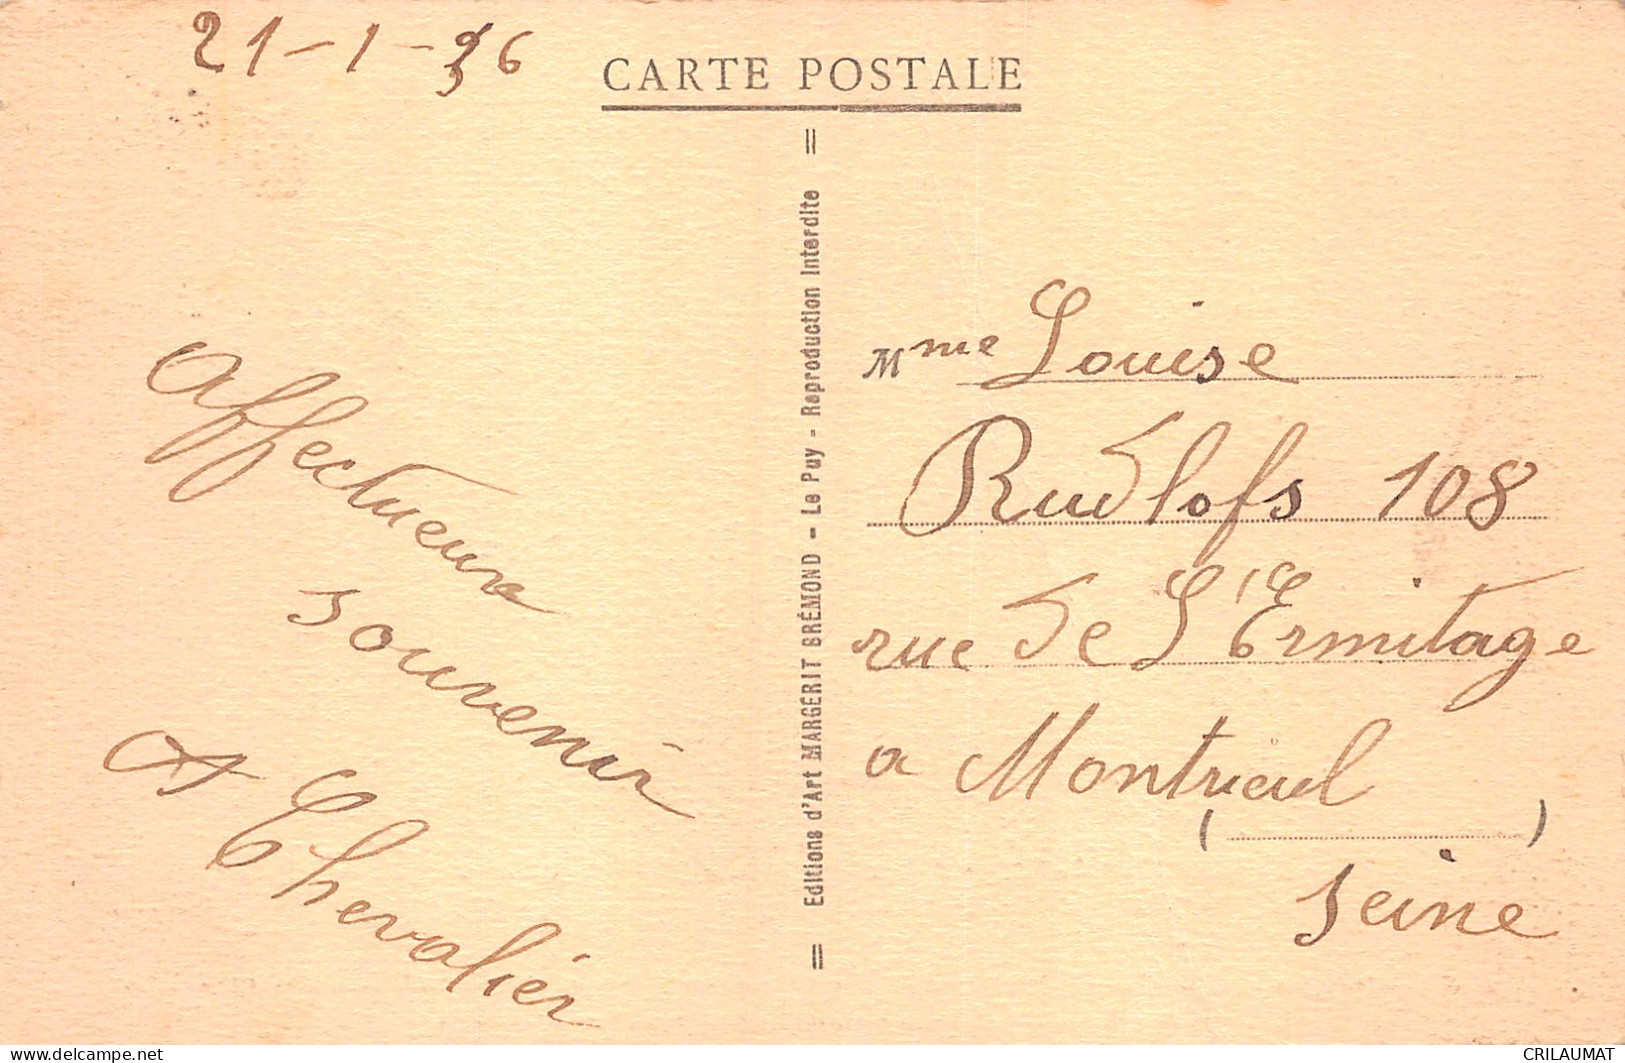 21-1-36
CARTE POSTALE
Affectueux
souvenir
A Chevalier
= Editions d'Art MARGERIT BRÉMOND - Le Puy - Reproduction Interdite =
Mme Louise
Rudlofs 108
rue de L'Ermitage
a Montreuil
( )
Seine
delcampe.net
CRILAUMAT